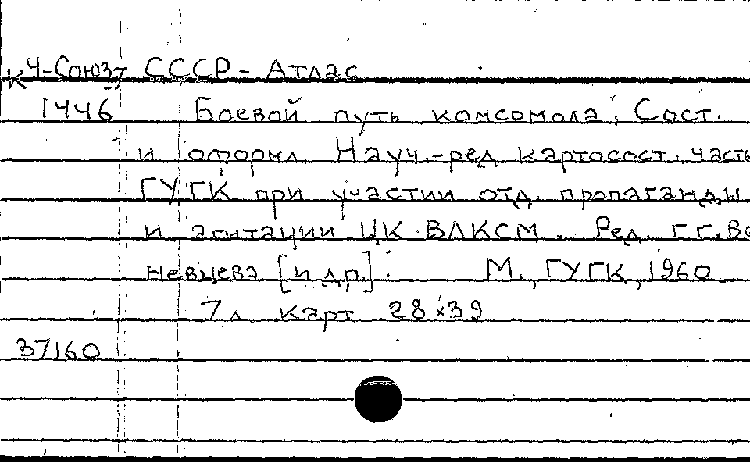 К 4-Союз-7 СССР - Атлас
1446 Боевой путь комсомола. Сост.
и оформл Науч.-ред картосост. часть
ГУГК при участии отд. пропаганды
и агитации ЦК ВЛКСМ. Ред. Г.Г. Во
невцева [и др.]. М., ГУГК, 1960
7 л карт 28×39
37160